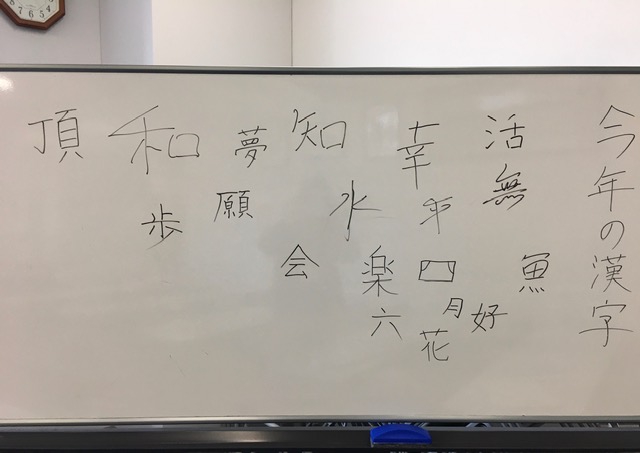 今年の漢字
活
無
魚
好
幸
四
月
花
知
水
楽
六
会
夢
願
和
歩
頂